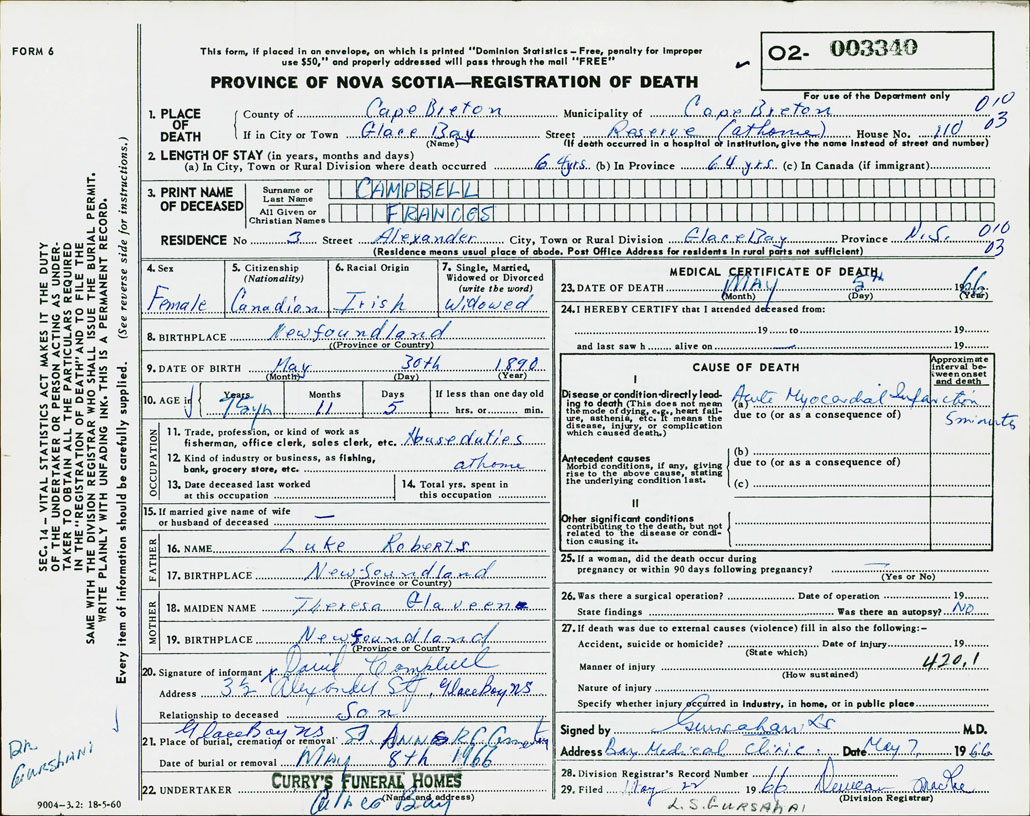 FORM 6
This form, if placed in an envelope, on which is printed "Dominion Statistics – Free, penalty for improper
use $50," and properly addressed will pass through the mail "FREE"
PROVINCE OF NOVA SCOTIA—REGISTRATION OF DEATH
02- 003340
For use of the Department only
1. PLACE OF DEATH
County of Cape Breton Municipality of Cape Breton 010
If in City or Town Glace Bay Street Reserve (at home) House No. 110 03
(Name) (If death occurred in a hospital or institution, give the name instead of street and number)
2. LENGTH OF STAY (in years, months and days)
(a) In City, Town or Rural Division where death occurred 64 yrs. (b) In Province 64 yrs. (c) In Canada (if immigrant)
3. PRINT NAME OF DECEASED
Surname or Last Name CAMPBELL
All Given or Christian Names FRANCES
RESIDENCE No 3 Street Alexander City, Town or Rural Division Glace Bay Province N.S. 010 03
(Residence means usual place of abode. Post Office Address for residents in rural parts not sufficient)
4. Sex Female
5. Citizenship (Nationality) Canadian
6. Racial Origin Irish
7. Single, Married, Widowed or Divorced (write the word) Widowed
8. BIRTHPLACE Newfoundland
(Province or Country)
9. DATE OF BIRTH May 30th 1890
(Month) (Day) (Year)
10. AGE Years 75 Months 11 Days 5 If less than one day old hrs. or min.
OCCUPATION
11. Trade, profession, or kind of work as
fisherman, office clerk, sales clerk, etc. House duties
12. Kind of industry or business, as fishing,
bank, grocery store, etc. at home
13. Date deceased last worked
at this occupation
14. Total yrs. spent in
this occupation
15. If married give name of wife
or husband of deceased —
FATHER
16. NAME Luke Roberts
17. BIRTHPLACE Newfoundland
(Province or Country)
MOTHER
18. MAIDEN NAME Theresa
19. BIRTHPLACE Newfoundland
(Province or Country)
20. Signature of informant x David Campbell
Address 3½ Alexander St, Glace Bay NS
Relationship to deceased Son
Glace Bay NS
21. Place of burial, cremation or removal St Anns R C Cemetery
Date of burial or removal MAY 8th 1966
22. UNDERTAKER CURRY'S FUNERAL HOMES
(Name and address)
Glace Bay
9004-3.2: 18-5-60
MEDICAL CERTIFICATE OF DEATH
23. DATE OF DEATH MAY 5th 1966
(Month) (Day) (Year)
24. I HEREBY CERTIFY that I attended deceased from:
19 to 19
and last saw h alive on — 19
CAUSE OF DEATH
Approximate interval between onset and death
I
Disease or condition directly leading to death (This does not mean the mode of dying, e.g., heart failure, asthenia, etc. It means the disease, injury, or complication which caused death.)
(a) Acute Myocardial Infarction 5 minutes
due to (or as a consequence of)
Antecedent causes
Morbid conditions, if any, giving rise to the above cause, stating the underlying condition last.
(b)
due to (or as a consequence of)
(c)
II
Other significant conditions
contributing to the death, but not related to the disease or condition causing it.
25. If a woman, did the death occur during
pregnancy or within 90 days following pregnancy? —
(Yes or No)
26. Was there a surgical operation? Date of operation 19
State findings Was there an autopsy? NO
27. If death was due to external causes (violence) fill in also the following:–
Accident, suicide or homicide? Date of injury 19
(State which)
Manner of injury 420.1
(How sustained)
Nature of injury
Specify whether injury occurred in industry, in home, or in public place
Signed by M.D.
Address Bay Medical Clinic. Date May 7, 1966
28. Division Registrar's Record Number
29. Filed May 22 1966
(Division Registrar)
L.S. GURSAHAI
SEC. 14 – VITAL STATISTICS ACT MAKES IT THE DUTY
OF THE UNDERTAKER OR PERSON ACTING AS UNDER-
TAKER TO OBTAIN ALL THE PARTICULARS REQUIRED
IN THE "REGISTRATION OF DEATH" AND TO FILE THE
SAME WITH THE DIVISION REGISTRAR WHO SHALL ISSUE THE BURIAL PERMIT.
WRITE PLAINLY WITH UNFADING INK. THIS IS A PERMANENT RECORD.
Every item of information should be carefully supplied. (See reverse side for instructions.)
DR GURSHANI